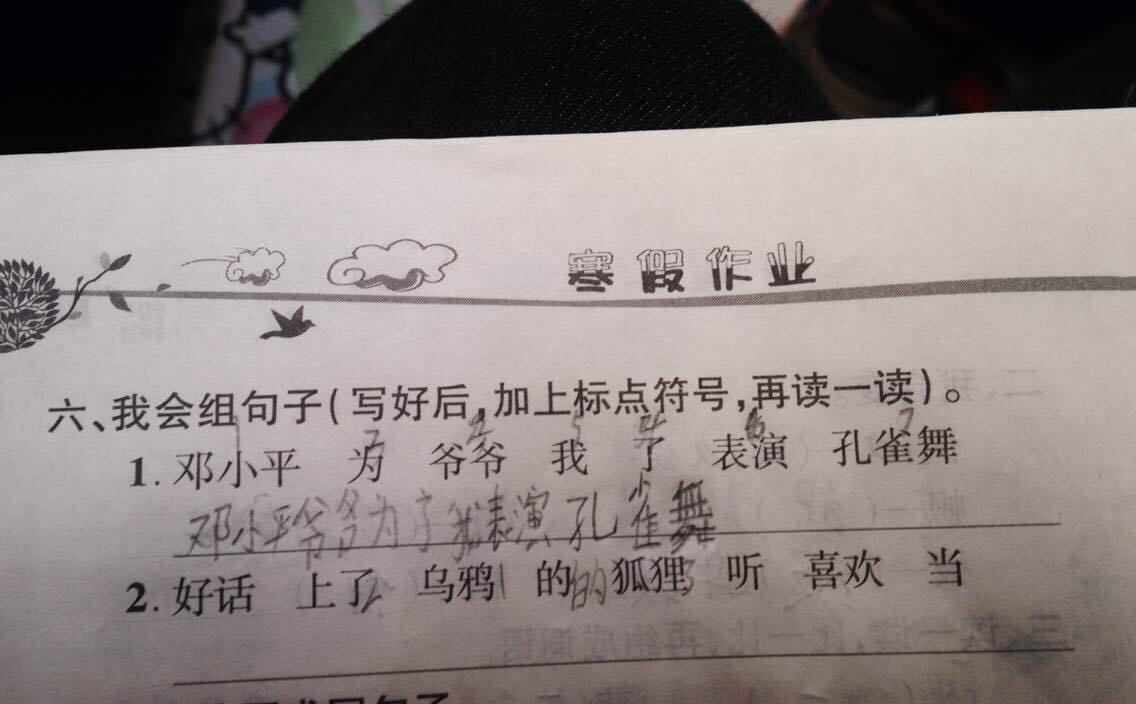 寒假作业
六、我会组句子(写好后,加上标点符号,再读一读)。
1 3 2 5 4 6 7
1. 邓小平 为 爷爷 我 了 表演 孔雀舞
邓小平爷爷为了我表演孔雀舞
2. 好话 上了2 乌鸦1 的的 狐狸3 听 喜欢 当